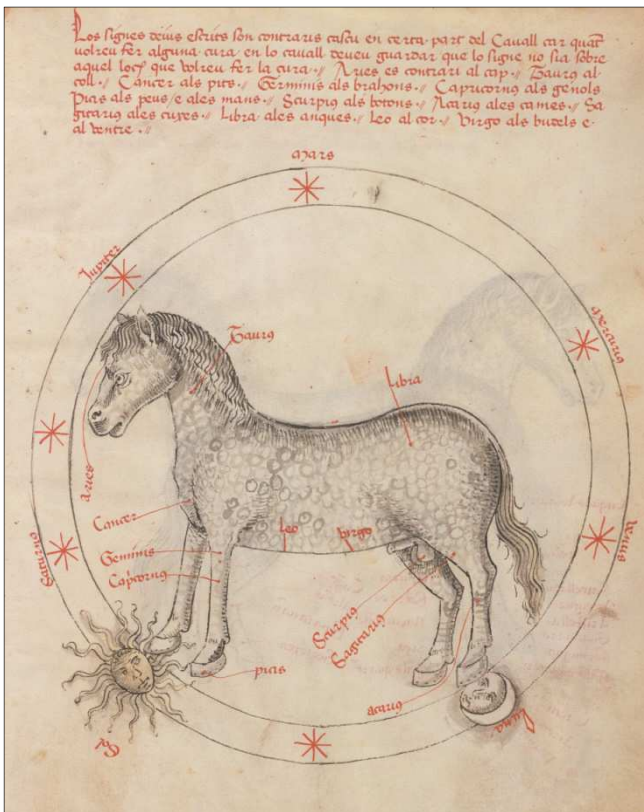 Los signes deius escrits son contraris cascu en certa part del Cauall car quãt
volreu fer alguna cura en lo cauall deueu guardar que lo signe no sia sobre
aquel loch que volreu fer la cura. // Aries es contrari al cap. // Taurꝯ al
coll. // Cancer als pits. // Geminis als brahons. // Capricornꝯ als genols
Picis als peus e ales mans. // Scurpiꝯ als botons. // Acariꝯ ales cames. // Sa
gitariꝯ ales cuxes. // Libra ales anques. // Leo al cor. // Virgo als budels e
al ventre. //
Mars
Jupiter
Mercuriꝯ
Taurꝯ
Libra
aries
Cancer
Leo
virgo
Geminis
Saturno
Venus
Scurpiꝯ
Sagitariꝯ
picis
acariꝯ
Luna